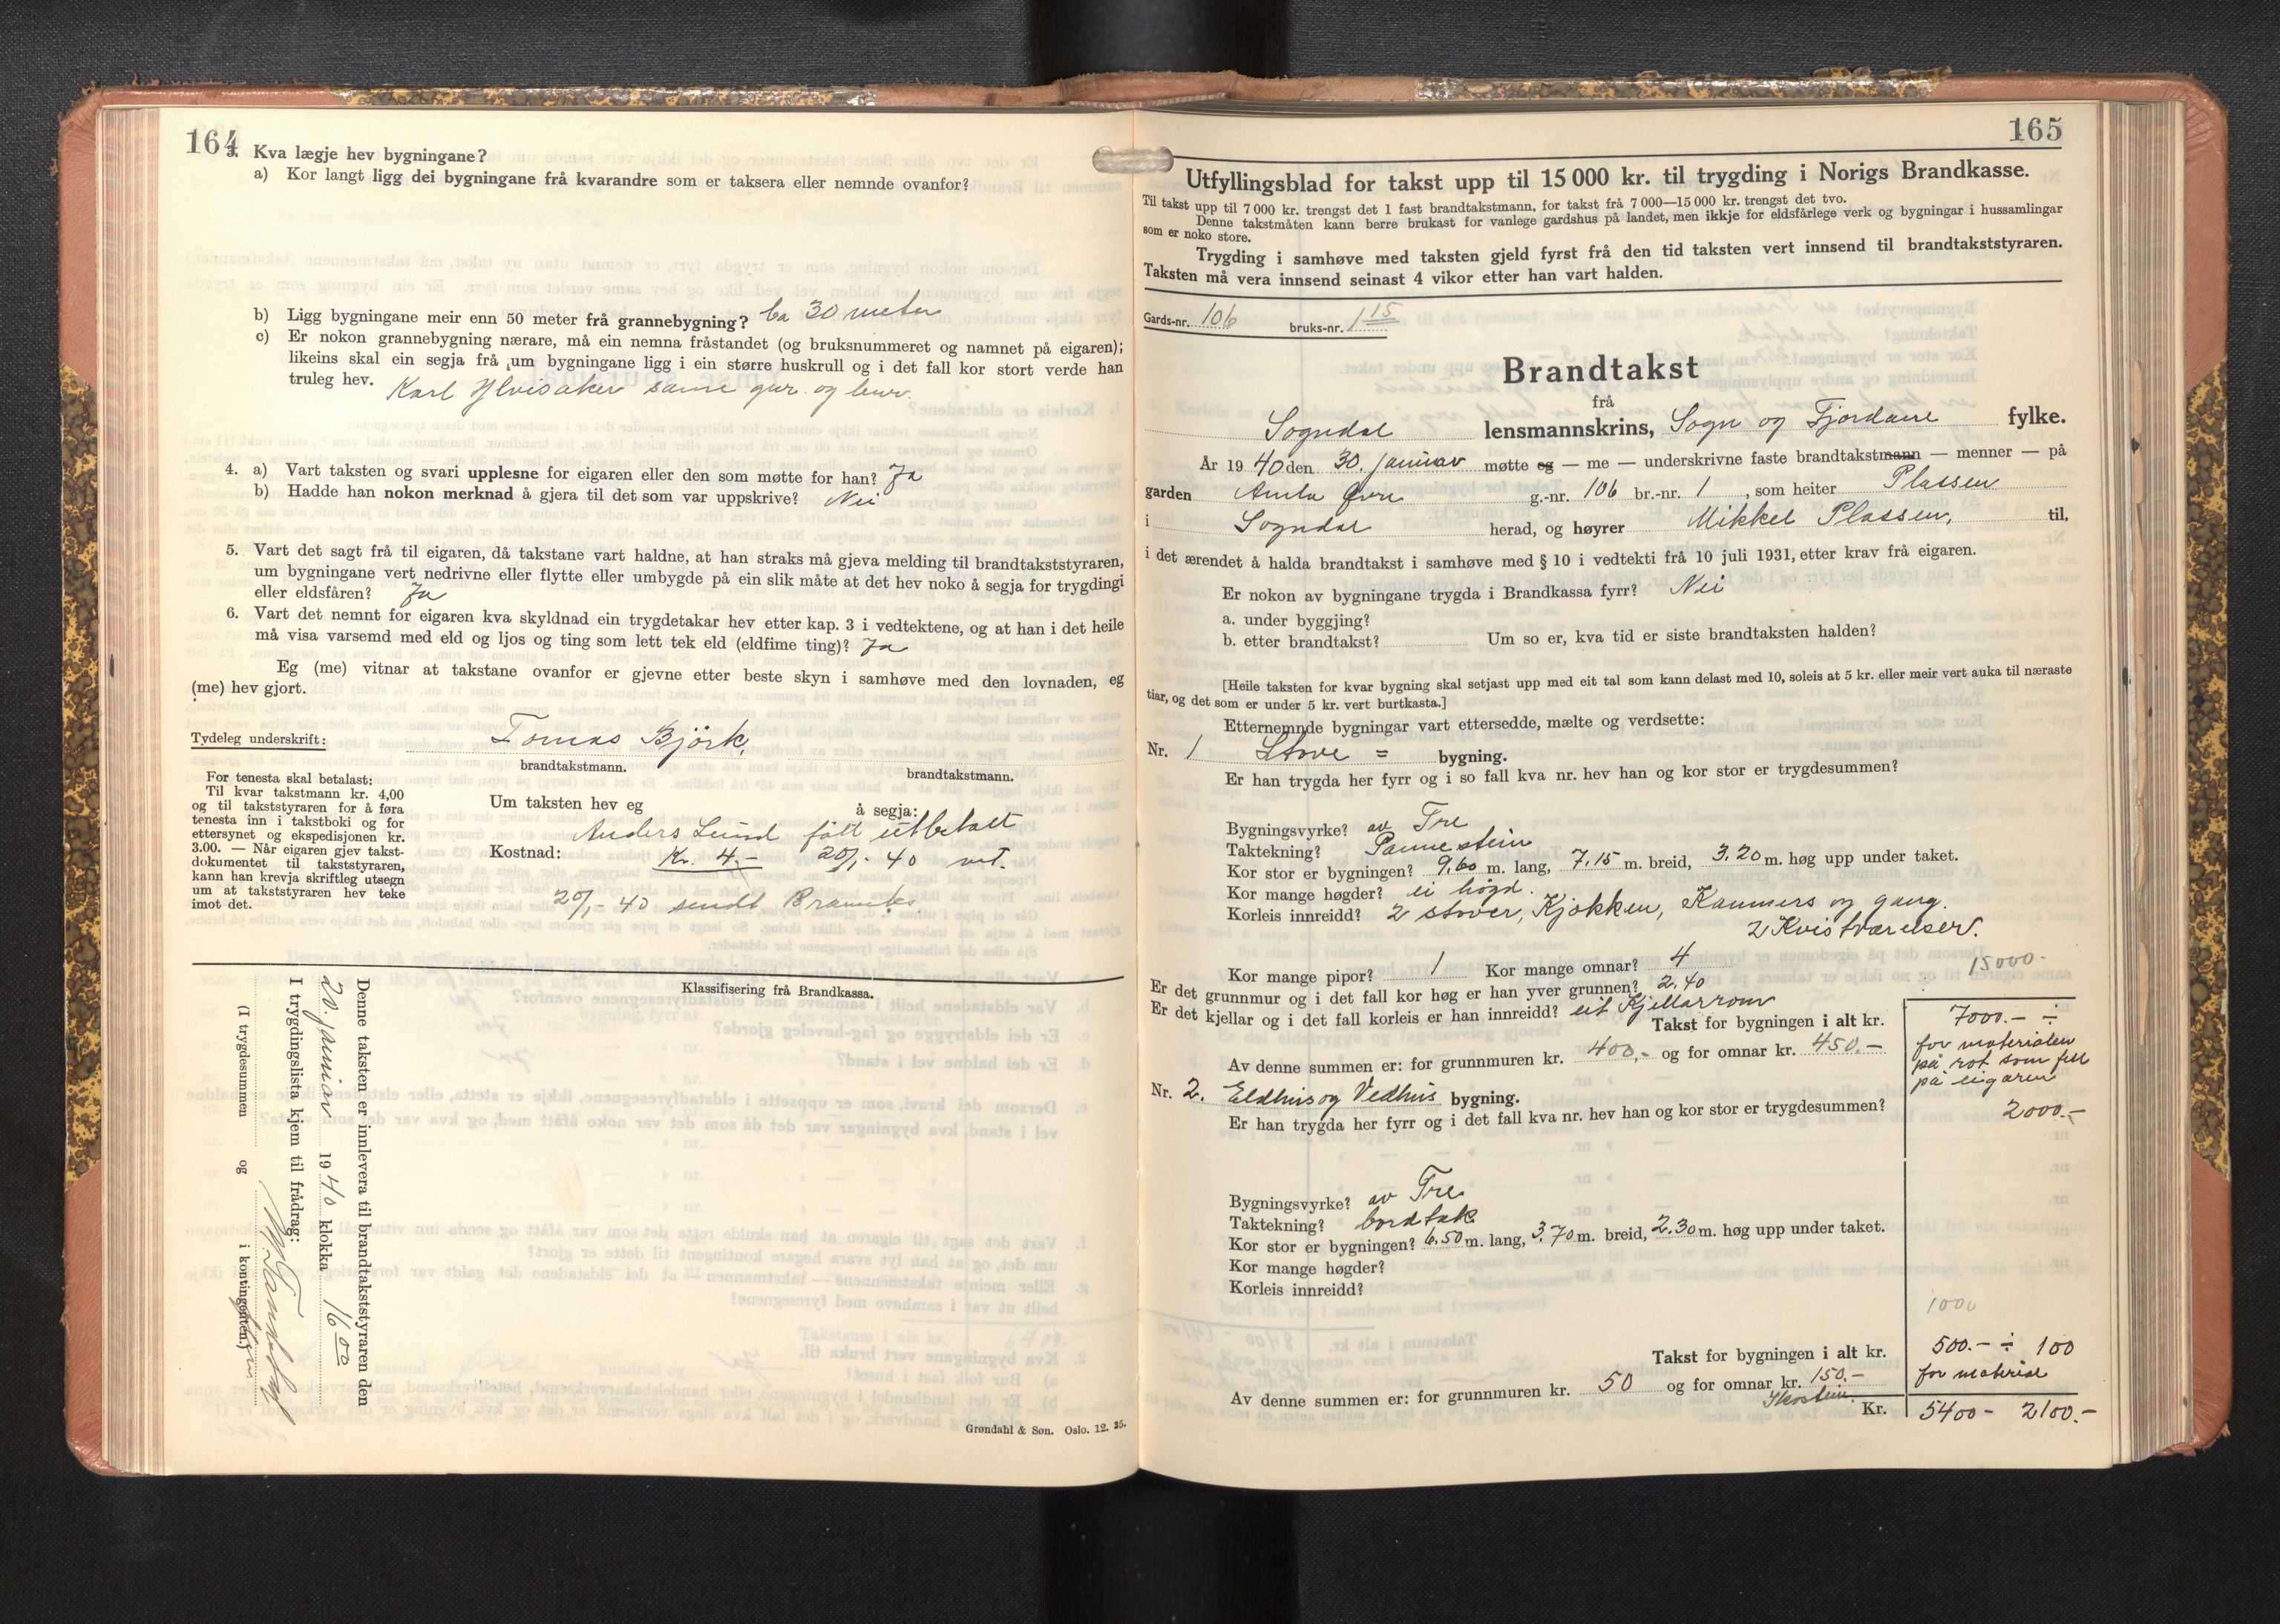 164
3. Kva lægje hev bygningane?
a) Kor langt ligg dei bygningane frå kvarandre som er taksera eller nemnde ovanfor?
b) Ligg bygningane meir enn 50 meter frå grannebygning? ca 30 meter
c) Er nokon grannebygning nærare, må ein nemna fråstandet (og bruksnummeret og namnet på eigaren);
likeins skal ein segja frå um bygningane ligg i ein større huskrull og i det fall kor stort verde han
truleg hev. Karl Hvisaker same gnr. og bnr.
4. a) Vart taksten og svari upplesne for eigaren eller den som møtte for han? Ja
b) Hadde han nokon merknad å gjera til det som var uppskrive? Nei
5. Vart det sagt frå til eigaren, då takstane vart haldne, at han straks må gjeva melding til brandtakststyraren,
um bygningane vert nedrivne eller flytte eller umbygde på ein slik måte at det hev noko å segja for trygdingi
eller eldsfåren? Ja
6. Vart det nemnt for eigaren kva skyldnad ein trygdetakar hev etter kap. 3 i vedtektene, og at han i det heile
må visa varsemd med eld og ljos og ting som lett tek eld (eldfime ting)? Ja
Eg (me) vitnar at takstane ovanfor er gjevne etter beste skyn i samhøve med den lovnaden, eg
(me) hev gjort.
Tydeleg underskrift: Tomas Björk,
brandtakstmann. brandtakstmann.
For tenesta skal betalast:
Til kvar takstmann kr. 4,00
og til takststyraren for å føra
tenesta inn i takstboki og for
ettersynet og ekspedisjonen kr.
3.00. — Når eigaren gjev takst-
dokumentet til takststyraren,
kann han krevja skriftleg utsegn
um at takststyraren hev teke
imot det.
Um taksten hev eg å segja:
Anders Lund fått utbetalt
Kostnad: Kr. 4.- 20/1-40
20/1-40 sendt
Klassifisering frå Brandkassa.
Denne taksten er innlevera til brandtakststyraren den
20. januar 1940 klokka 16 00
I trygdingslista kjem til frådrag:
(I trygdesummen og i kontingenten.)
Grøndahl & Søn. Oslo. 12. 35.
165
Utfyllingsblad for takst upp til 15 000 kr. til trygding i Norigs Brandkasse.
Til takst upp til 7 000 kr. trengst det 1 fast brandtakstmann, for takst frå 7 000—15 000 kr. trengst det tvo.
Denne takstmåten kann berre brukast for vanlege gardshus på landet, men ikkje for eldsfårlege verk og bygningar i hussamlingar
som er noko store.
Trygding i samhøve med taksten gjeld fyrst frå den tid taksten vert innsend til brandtakststyraren.
Taksten må vera innsend seinast 4 vikor etter han vart halden.
Gards-nr. 106 bruks-nr. 1 15
Brandtakst
frå
Sogndal lensmannskrins, Sogn og Fjordane fylke.
År 1940 den 30. januar møtte eg — me — underskrivne faste brandtakstmann — menner — på
garden Amla Øvre g.-nr. 106 br.-nr. 1, som heiter Plassen
i Sogndal herad, og høyrer Mikkel Plassen, til,
i det ærendet å halda brandtakst i samhøve med § 10 i vedtekti frå 10 juli 1931, etter krav frå eigaren.
Er nokon av bygningane trygda i Brandkassa fyrr? Nei
a. under byggjing?
b. etter brandtakst? Um so er, kva tid er siste brandtaksten halden?
[Heile taksten for kvar bygning skal setjast upp med eit tal som kann delast med 10, soleis at 5 kr. eller meir vert auka til næraste
tiar, og det som er under 5 kr. vert burtkasta.]
Etternemnde bygningar vart ettersedde, mælte og verdsette:
Nr. 1 Stove = bygning.
Er han trygda her fyrr og i so fall kva nr. hev han og kor stor er trygdesummen?
Bygningsvyrke? av Tre
Taktekning? Pannestein
Kor stor er bygningen? 9,60 m. lang, 7.15 m. breid, 3.20 m. høg upp under taket.
Kor mange høgder? ei høgd.
Korleis innreidd? 2 stover, Kjøkken, Kammers og gang.
2 Kvistværelser.
Kor mange pipor? 1 Kor mange omnar? 4
15000-
Er det grunnmur og i det fall kor høg er han yver grunnen? 2.40
Er det kjellar og i det fall korleis er han innreidd? eit Kjellarrom
Takst for bygningen i alt kr. 7000.- ÷
for materialen
på rot som fell
på eigaren
2000.-
Av denne summen er: for grunnmuren kr. 400,- og for omnar kr. 450.-
Nr. 2. Eldhus og Vedhus bygning.
Er han trygda her fyrr og i det fall kva nr. hev han og kor stor er trygdesummen?
Bygningsvyrke? av Tre
Taktekning? bordtak
Kor stor er bygningen? 6.50 m. lang, 3.70 m. breid, 2.30 m. høg upp under taket.
Kor mange høgder?
Korleis innreidd?
1000
Takst for bygningen i alt kr. 500.- ÷ 100
for material
Av denne summen er: for grunnmuren kr. 50 og for omnar kr. 150.-
Kr. 5400- 2100.-